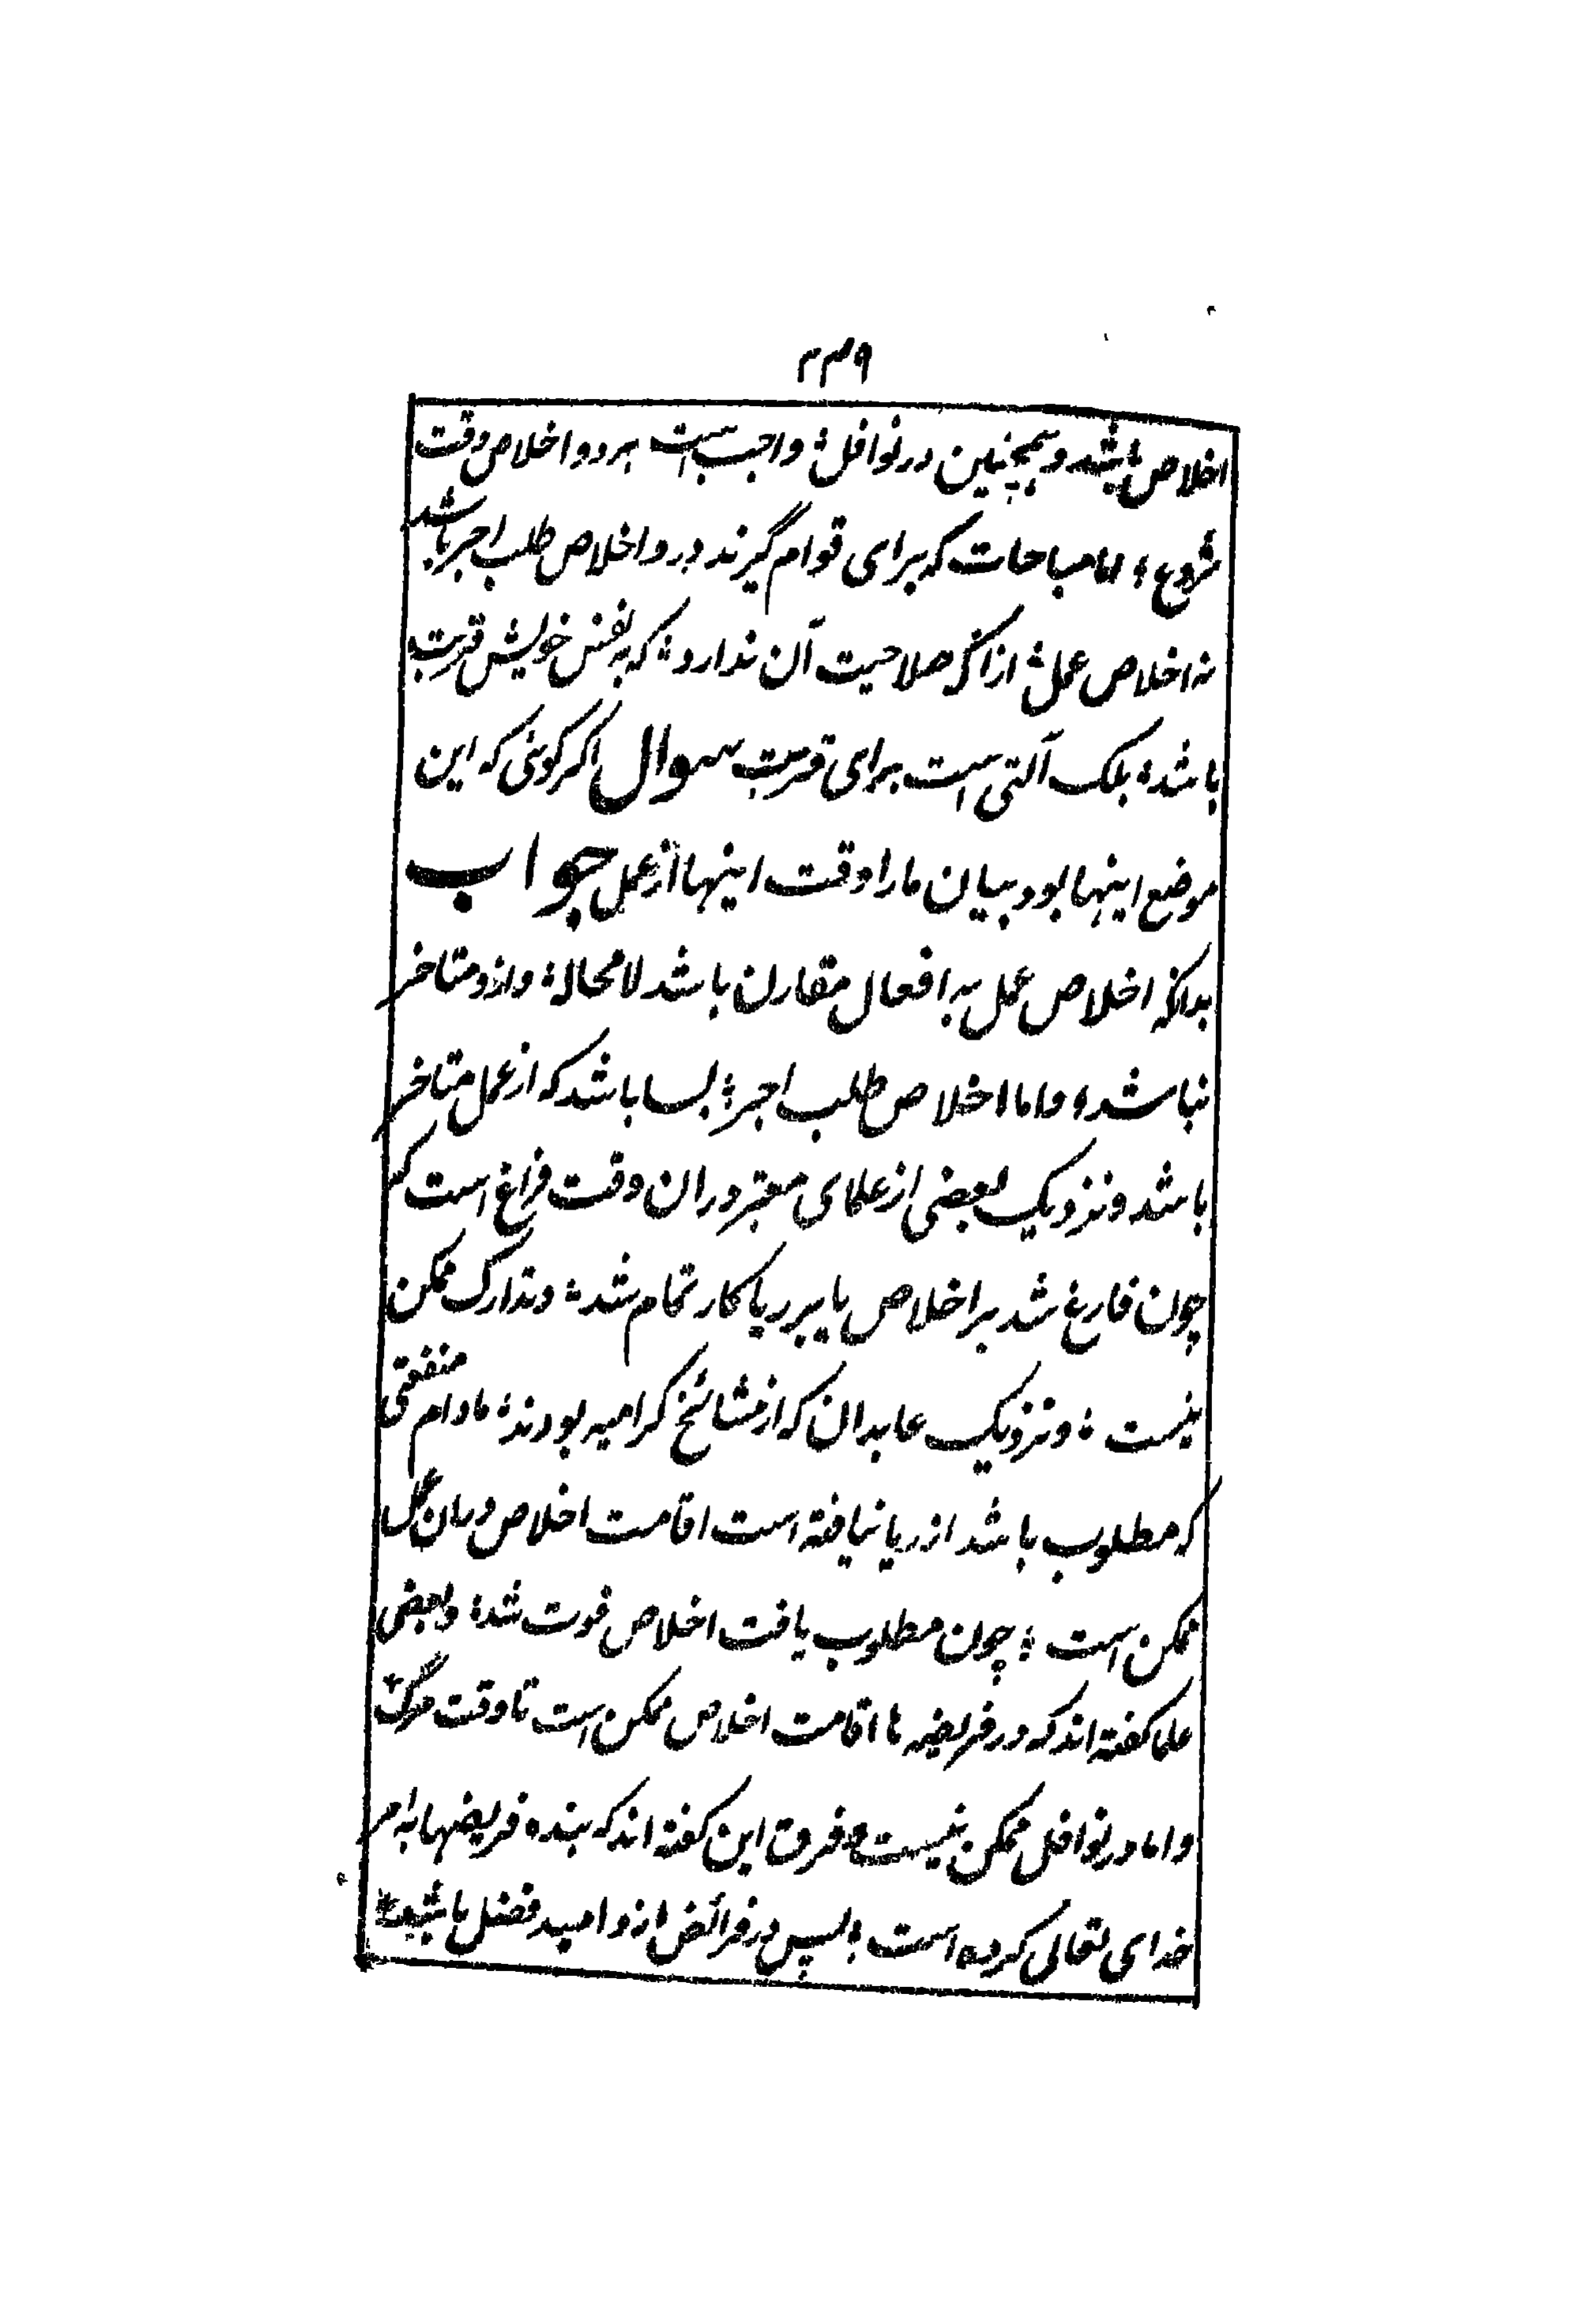 ۲۳۹
اخلاص باشد و همچنین در نوافل؛ واجب است هر دو اخلاص وقت
شروع؛ اما مباحات که برای قوام گیرند درو اخلاص طلب اجر باشد
نه اخلاص عمل؛ ازانکه صلاحیت آن ندارد؛ که به نفس خویش قربت
باشد؛ بلک آلتی است برای قربت سوال اگر گوئی که این
موضع اینها بود بیان ما را وقت اینها از عمل جواب
بدانکه اخلاص عمل به افعال مقارن باشد لامحاله؛ وازو متاخر
نباشد؛ و اما اخلاص طلب اجر؛ بسا باشد که از عمل متاخر
باشد و نزدیک بعضی از علمای معتبر دران وقت فراغ است که
چون فارغ شد بر اخلاص یا بر ریا کار تمام شد؛ و تدارک ممکن
نیست؛ و نزدیک عابدان که از مشائخ کرامیه بودند؛ مادام منفعتی
که مطلوب باشد از ریا نیافته است اقامت اخلاص دران عمل
ممکن است؛ چون مطلوب یافت اخلاص فوت شد؛ و بعضی
علما گفته اند که در فریضه ها اقامت اخلاص ممکن است تا وقت مرگ
و اما در نوافل ممکن نیست و فرق این گفته اند که بنده فریضها به امر
خدای تعالی کرده است؛ پس در فرائض ازو امید فضل باشد